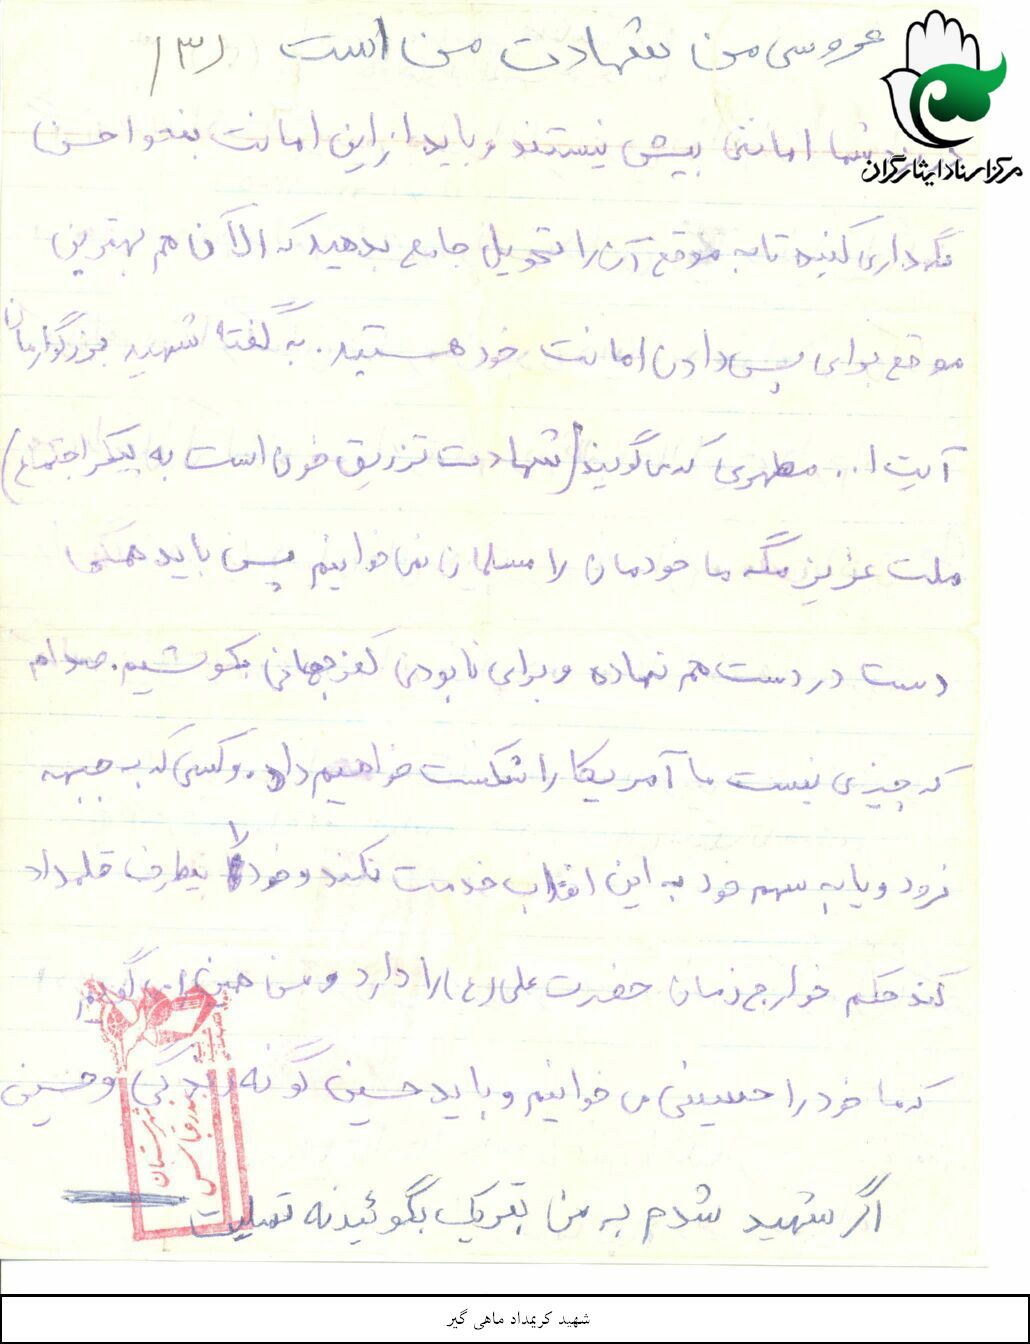 عروسی من شهادت من است (۳)
مرکز اسناد ایثارگران
نزد شما امانتی بیش نیستند و باید از این امانت بنحو احسن
نگهداری کنید تا به موقع آن را تحویل جامع بدهید که الآن هم بهترین
موقع برای پس دادن امانت خود هستید. به گفته شهید بزرگوارمان
آیت ا... مطهری که می گویند (شهادت تزریق خون است به پیکر اجتماع)
ملت عزیز مگه ما خودمان را مسلمان نمی خوانیم پس باید همگی
دست در دست هم نهاده و برای نابودی کفر جهانی بکوشیم. صدام
که چیزی نیست ما آمریکا را شکست خواهیم داد. و کسی که به جبهه
نرود و یا به سهم خود به این انقلاب خدمت نکند و خود را بیطرف قلمداد
کند حکم خوارج زمان حضرت علی (ع) را دارد و من
که ما خود را حسینی می خوانیم و باید حسین گونه و حسینی
اگر شهید شدم به من تبریک بگوئید نه تسلیت
شهید کریمداد ماهی گیر